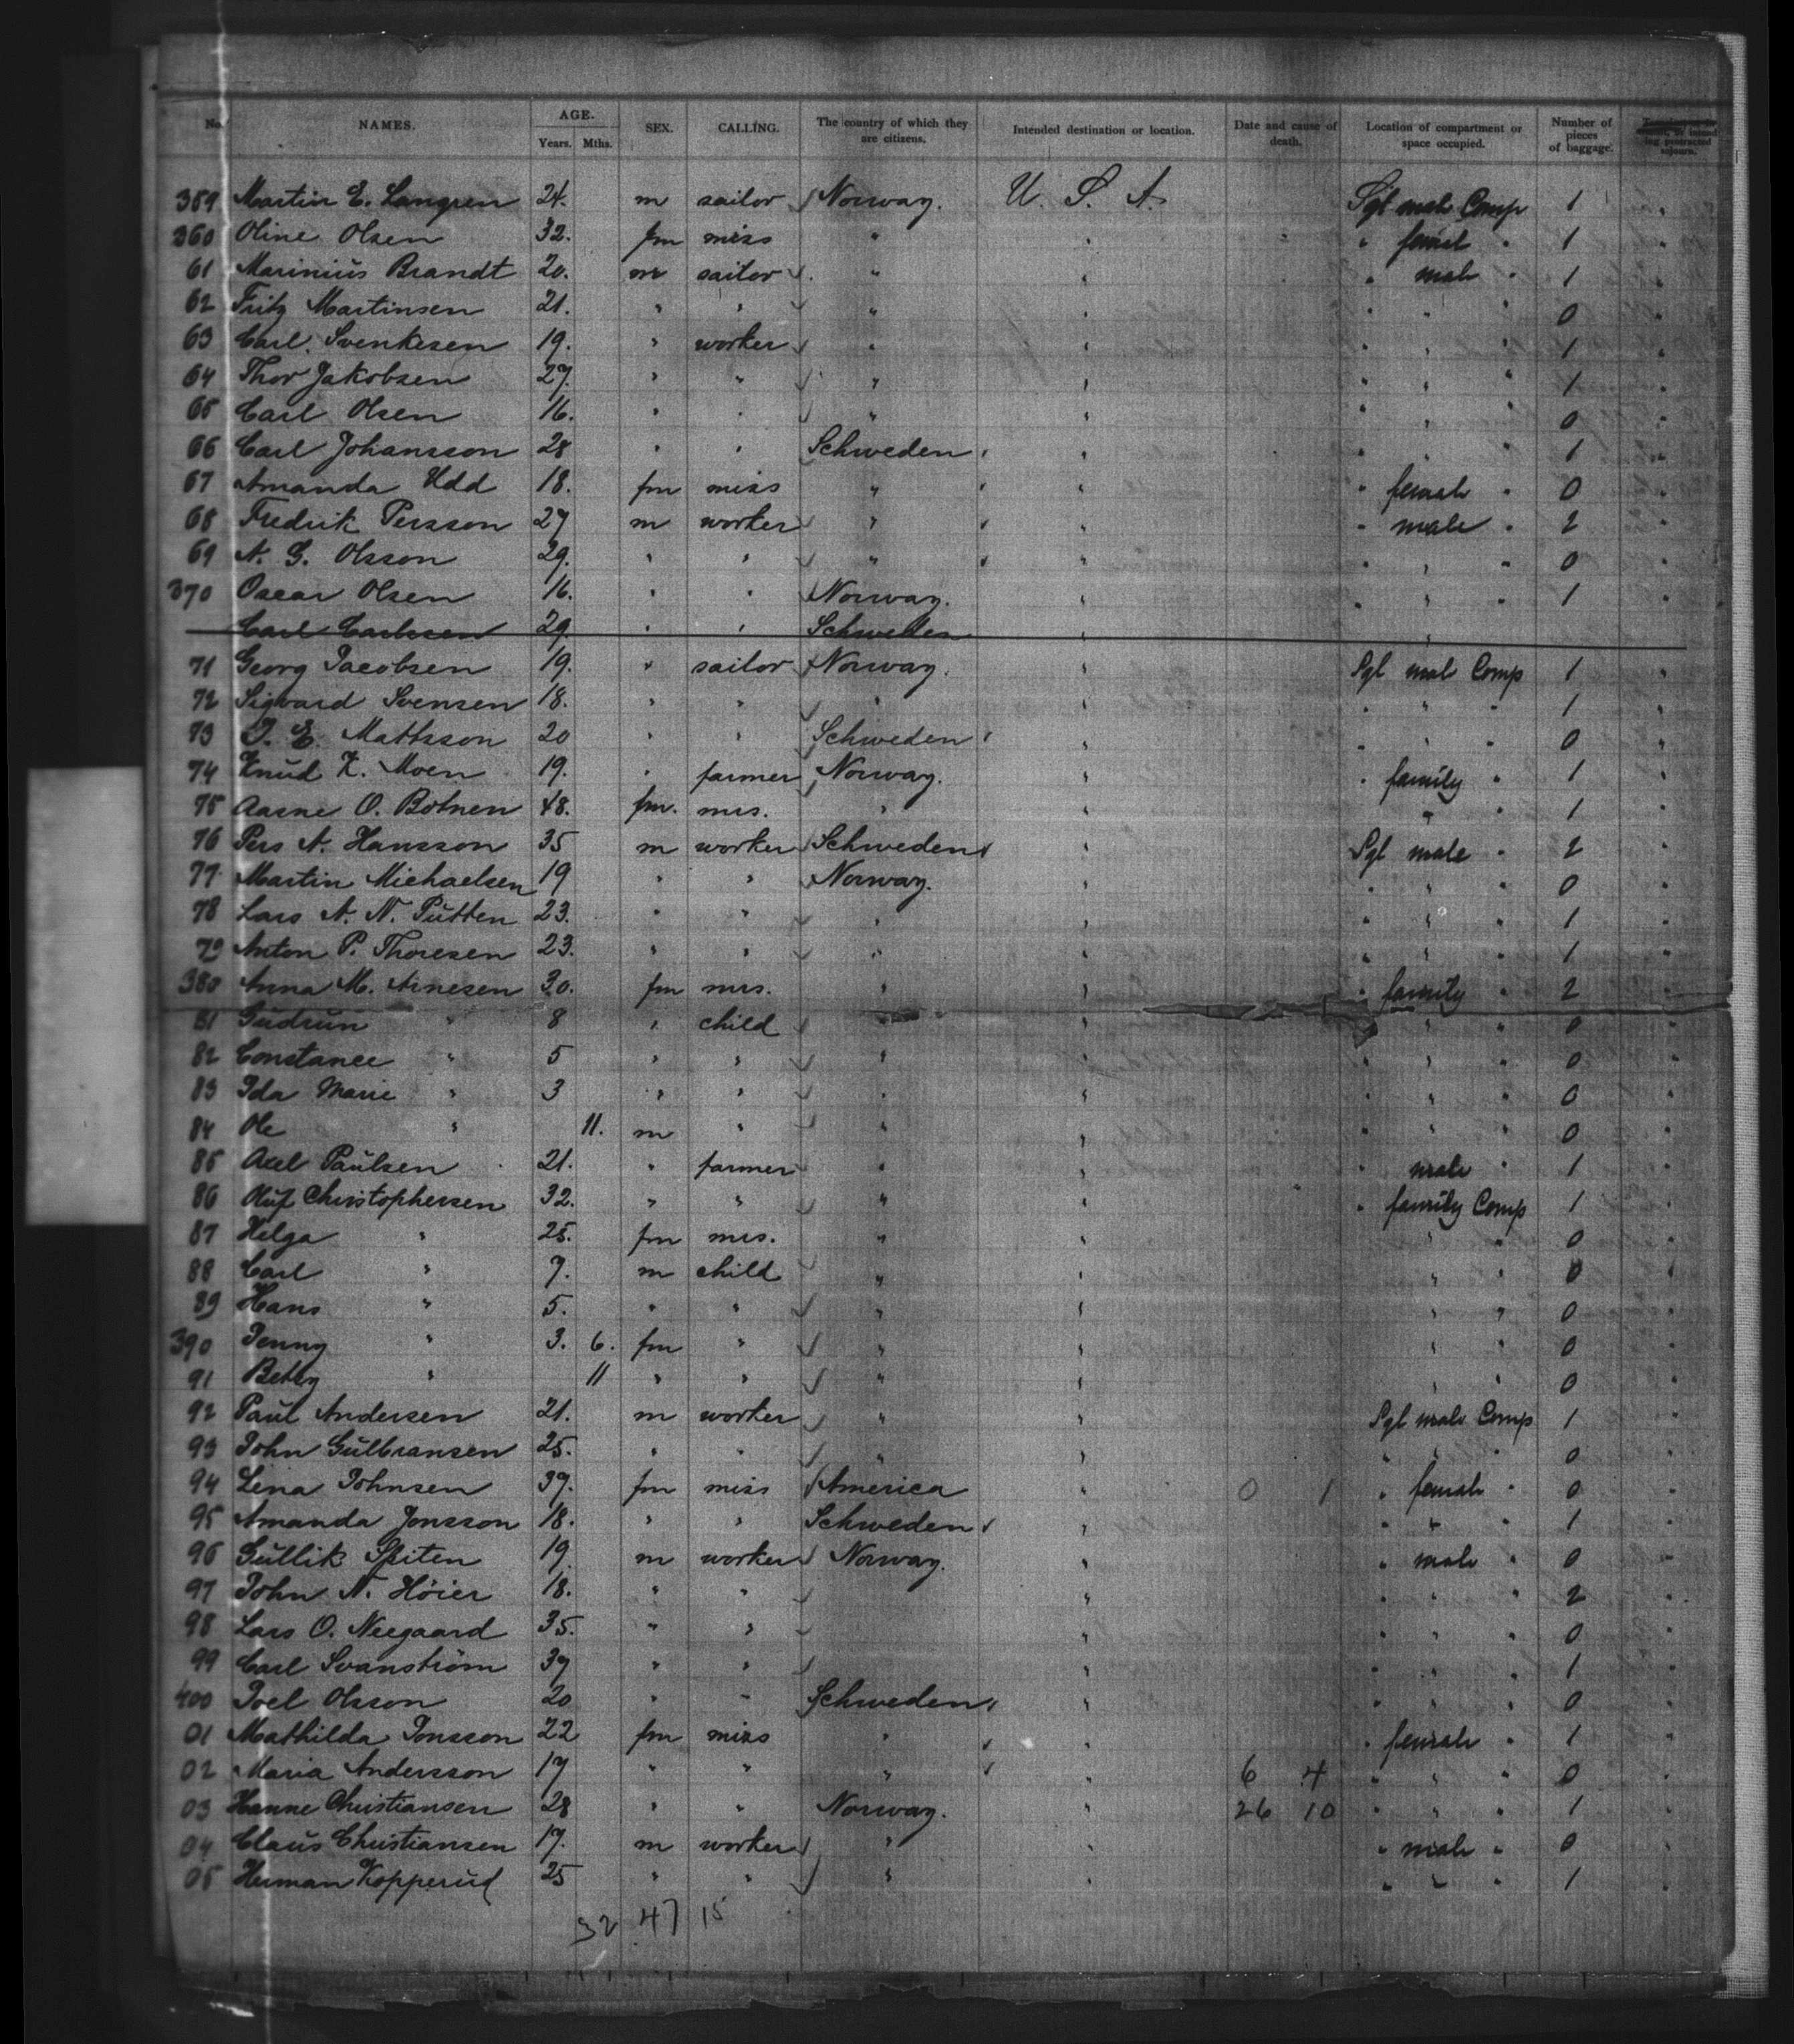 No. NAMES. AGE. Years. Mths. SEX. CALLING. The country of which they are citizens. Intended destination or location. Date and cause of death. Location of compartment or space occupied. Number of pieces of baggage.
359 Martin E. Langren 24. m sailor Norway. U. S. A. Sgl male Comp 1
360 Oline Olsen 32. fm miss " " " female " 1
61 Marinius Brandt 20. m sailor " " " male " 1
62 Fritz Martinsen 21. " " " " " " " 0
63 Carl Svenkesen 19. " worker " " " " " 1
64 Thor Jakobsen 27. " " " " " " " 1
65 Carl Olsen 16. " " " " " " " 0
66 Carl Johansson 28 " " Schweden " " " " 1
67 Amanda Udd 18. fm miss " " " female " 0
68 Fredrik Persson 27 m worker " " " male " 2
69 A. G. Olsson 29. " " " " " " " 0
370 Oscar Olsen 16. " " Norway. " " " " 1
Carl Carlssen 29. " " Schweden " "
71 Georg Jacobsen 19. " sailor Norway. " Sgl male Comp 1
72 Sigvard Svensen 18. " " " " " " " 1
73 J. E. Mattsson 20 " " Schweden " " " " 0
74 Knud K. Moen 19. " farmer Norway. " " family " 1
75 Aasne O. Botnen 48. fm. mrs. " " " 1
76 Pers A. Hansson 35 m worker Schweden " Sgl male " 2
77 Martin Michaelsen 19 " " Norway. " " " " 0
78 Lars A. N. Putten 23. " " " " " " " 1
79 Anton P. Thoresen 23. " " " " " " " 1
380 Anna M. Arnesen 30. fm mrs. " " " family " 2
81 Gudrun " 8 " child " " " " 0
82 Constance " 5 " " " " " " " 0
83 Ida Marie " 3 " " " " " " " 0
84 Ole " 11. m " " " " " " 0
85 Axel Paulsen 21. " farmer " " " male " 1
86 Oluf Christophersen 32. " " " " " family Comp 1
87 Helga " 25. fm mrs. " " " " 0
88 Carl " 7. m child " " " " 0
89 Hans " 5. " " " " " " 0
390 Jenny " 3. 6. fm " " " " " 0
91 Betsy " 11 " " " " " " 0
92 Paul Andersen 21. m worker " " Sgl male Comp 1
93 John Gulbransen 25. " " " " " " " 0
94 Lina Johnsen 37. fm miss America " 0 1 " female " 0
95 Amanda Jonsson 18. " " Schweden " " " " 1
96 Gullik Spiten 19. m worker Norway. " " male " 0
97 John N. Höier 18. " " " " " " 2
98 Lars O. Neegaard 35. " " " " " " 0
99 Carl Svanström 37 " " " " " " 1
400 Joel Olsson 20 " " Schweden " " " " 0
01 Mathilda Jonsson 22 fm miss " " " female " 1
02 Maria Andersson 17 " " " " 6 4 " " " 0
03 Hanne Christiansen 28 " " Norway. " 26 10 " " " 1
04 Claus Christiansen 17. m worker " " " male " 0
05 Herman Kopperud 25 " " " " " " " 1
32 47 15